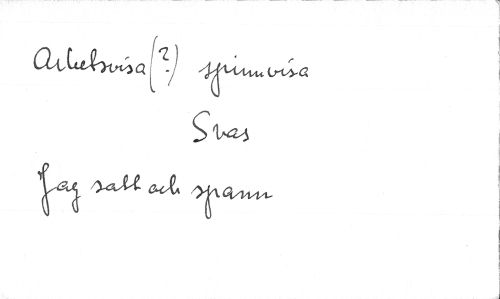 Arbetsvisa (?) spinnvisa
Svas
Jag satt och spann